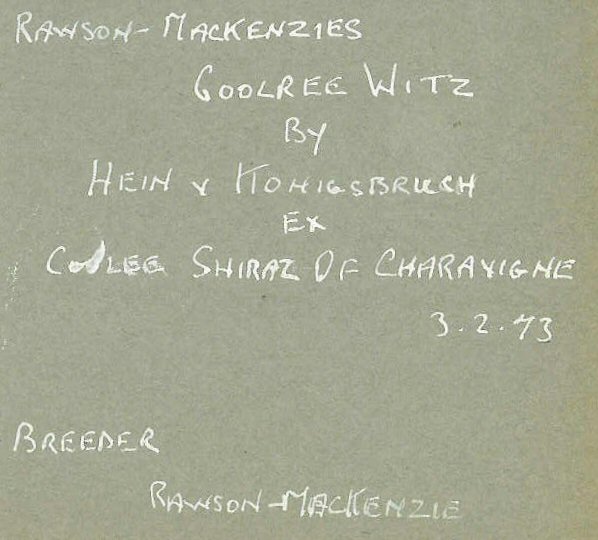 RAWSON-MACKENZIES
GOOLREE WITZ
BY
HEIN V KONIGSBRUCH
EX
SHIRAZ OF CHARAVIGNE
3.2.73
BREEDER
RAWSON-MACKENZIE